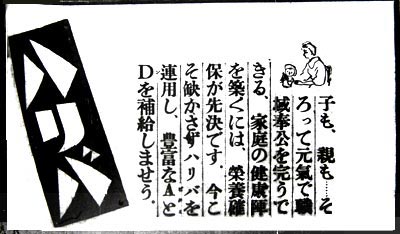 ハリバ
子も、親も……そ
ろって元氣で職
域奉公を完うで
きる、家庭の健康陣
を築くには、榮養確
保が先決です。今こ
そ缺かさずハリバを
連用し、豊富なAと
Dを補給しませう。